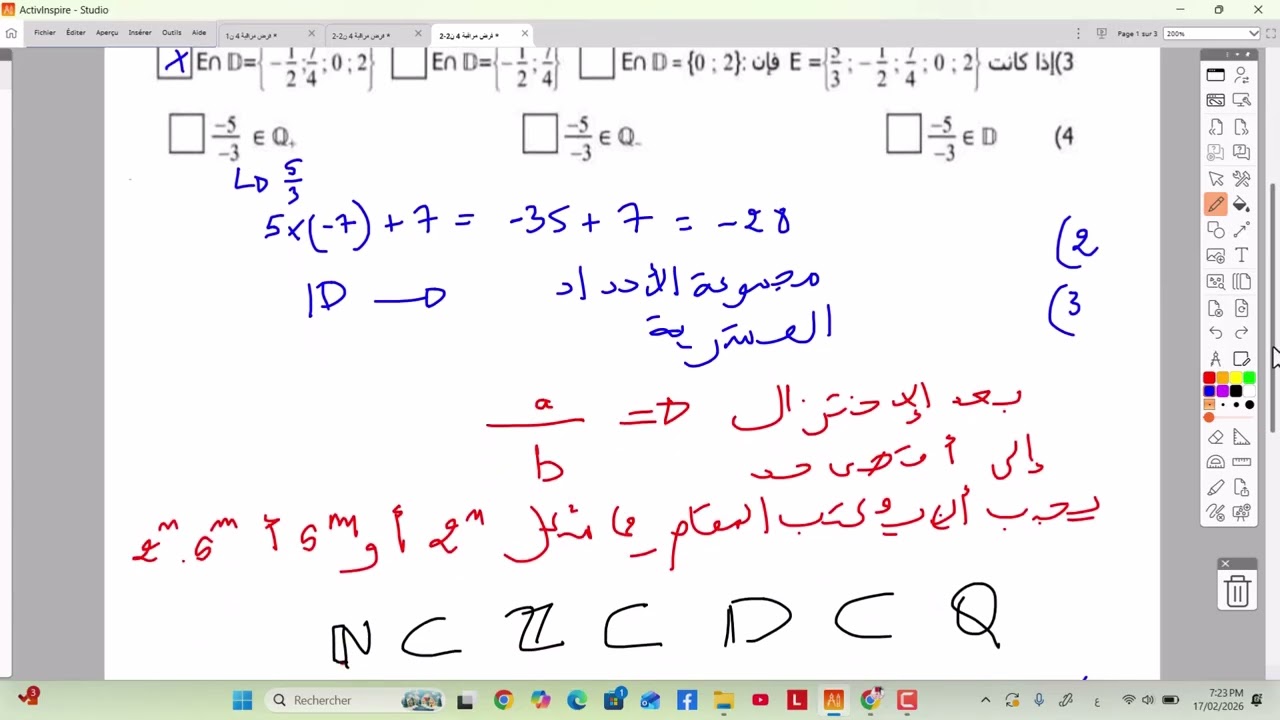 ActivInspire - Studio
Fichier Éditer Aperçu Insérer Outils Aide
فرض مراقبة 4 ن1 *
فرض مراقبة 4 ن2-2 *
فرض مراقبة 4 ن2-2 *
Page 1 sur 3
200%
3)إذا كانت E ={5/3 ; -1/2 ; 7/4 ; 0 ; 2} فإن: E∩D = {0 ; 2} E∩D={-1/2 ; 7/4} X E∩D={-1/2 ; 7/4 ; 0 ; 2}
4) -5/-3 ∈ D -5/-3 ∈ Q- -5/-3 ∈ Q+
5/3
2) 5×(-7) + 7 = -35 + 7 = -28
3) مجموعة الأعداد ID
العشرية
بعد الإختزال => a/b
إلى أقصى حد
يجب أن يكتب المقام على شكل 2ⁿ أو 5ᵐ أو 2ⁿ.5ᵐ
N ⊂ Z ⊂ D ⊂ Q
3
Rechercher
7:23 PM
17/02/2026